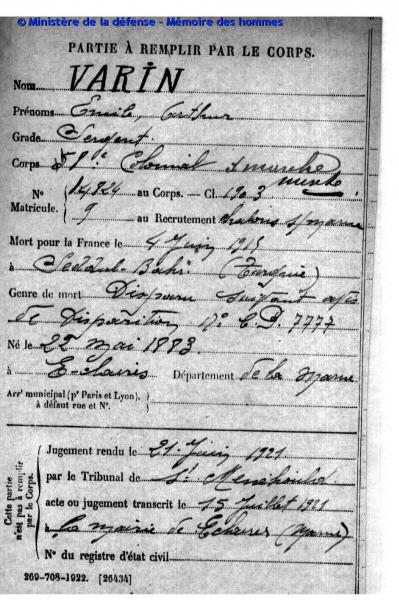 © Ministère de la défense - Mémoire des hommes
PARTIE À REMPLIR PAR LE CORPS.
Nom VARIN
Prénoms Emile, Arthur
Grade Sergent
Corps Colonial
mixte
N° Matricule. 14.824 au Corps. — Cl. 1903
9 au Recrutement Châlons s/Marne
Mort pour la France le 4 Juin 1915
à Seddul-Bahr (Turquie)
Genre de mort Disparu suivant
de Disparition N° 7777
Né le 22 mai 1883
à Eclaires Département de la Marne
Arr^t municipal (p^r Paris et Lyon),
à défaut rue et N°.
Cette partie n'est pas à remplir par le Corps.
Jugement rendu le 21 Juin 1921
par le Tribunal de S^te Menehould
acte ou jugement transcrit le 15 Juillet 1921
à la mairie de Eclaires (Marne)
N° du registre d'état civil
269-708-1922. [26434]